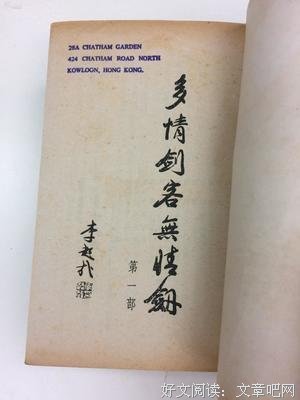 28A CHATHAM GARDEN
424 CHATHAM ROAD NORTH
KOWLOON, HONG KONG.
多情劍客無情劍
第一部
好文阅读:文章吧网